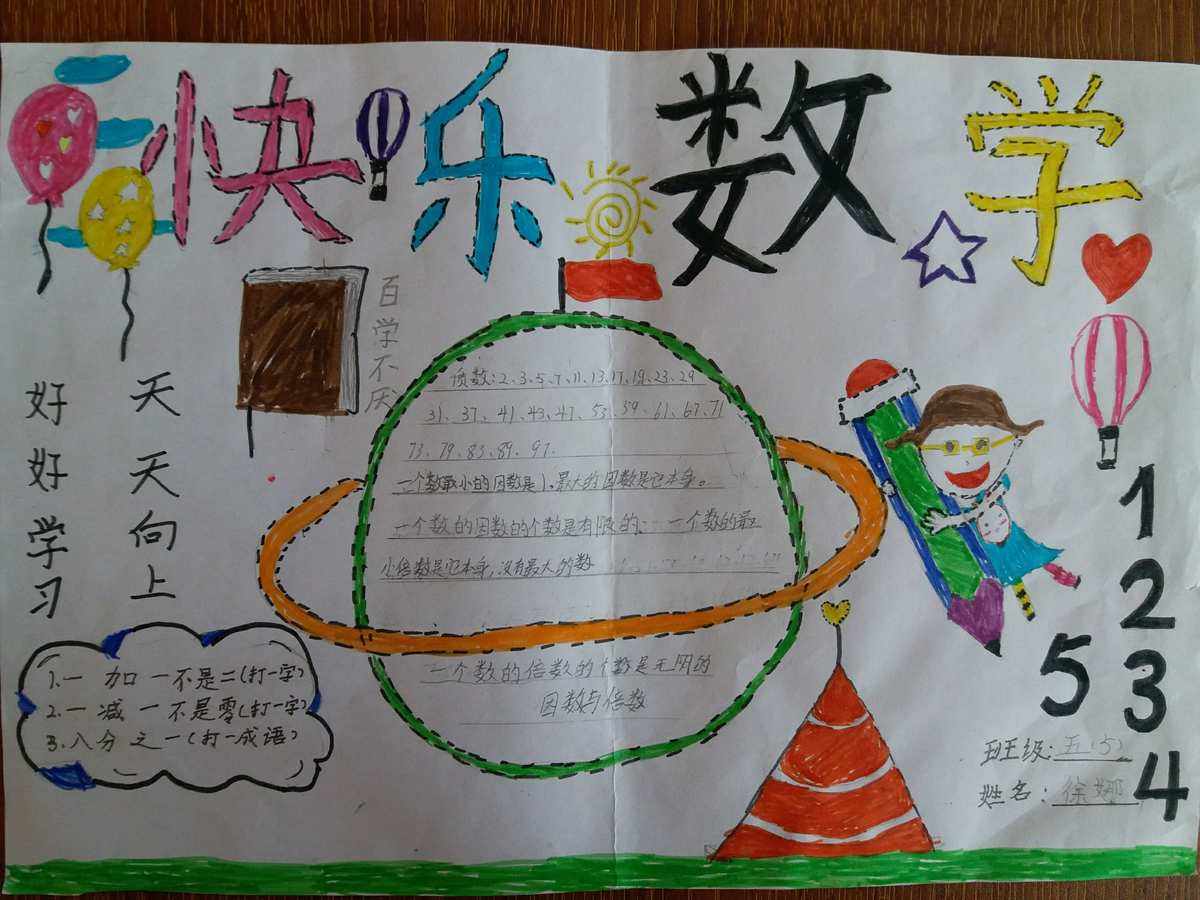 快乐数学
百学不厌
好好学习
天天向上
质数:2、3、5、7、11、13、17、19、23、29
31、37、41、43、47、53、59、61、67、71
73、79、83、89、97.
一个数最小的因数是1、最大的因数是它本身。
一个数的因数的个数是有限的; 一个数的最
小倍数是它本身,没有最大的数
一个数的倍数的个数是无限的
因数与倍数
1.一 加 一不是二(打一字)
2.一 减 一不是零(打一字)
3.八分之一(打一成语)
1
2
3
4
5
班级:五(5)
姓名:徐娜